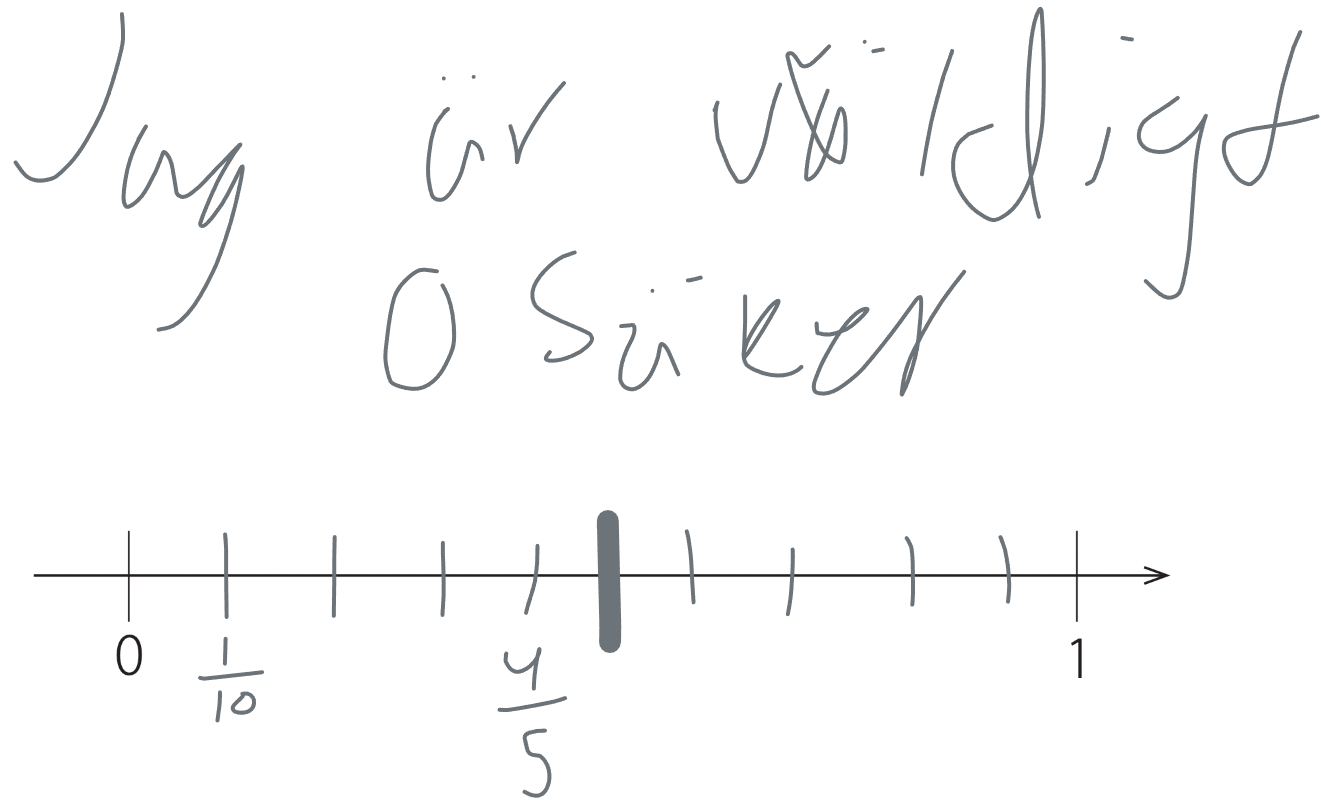 Jag är väldigt
osäker
0 1/10 4/5 1